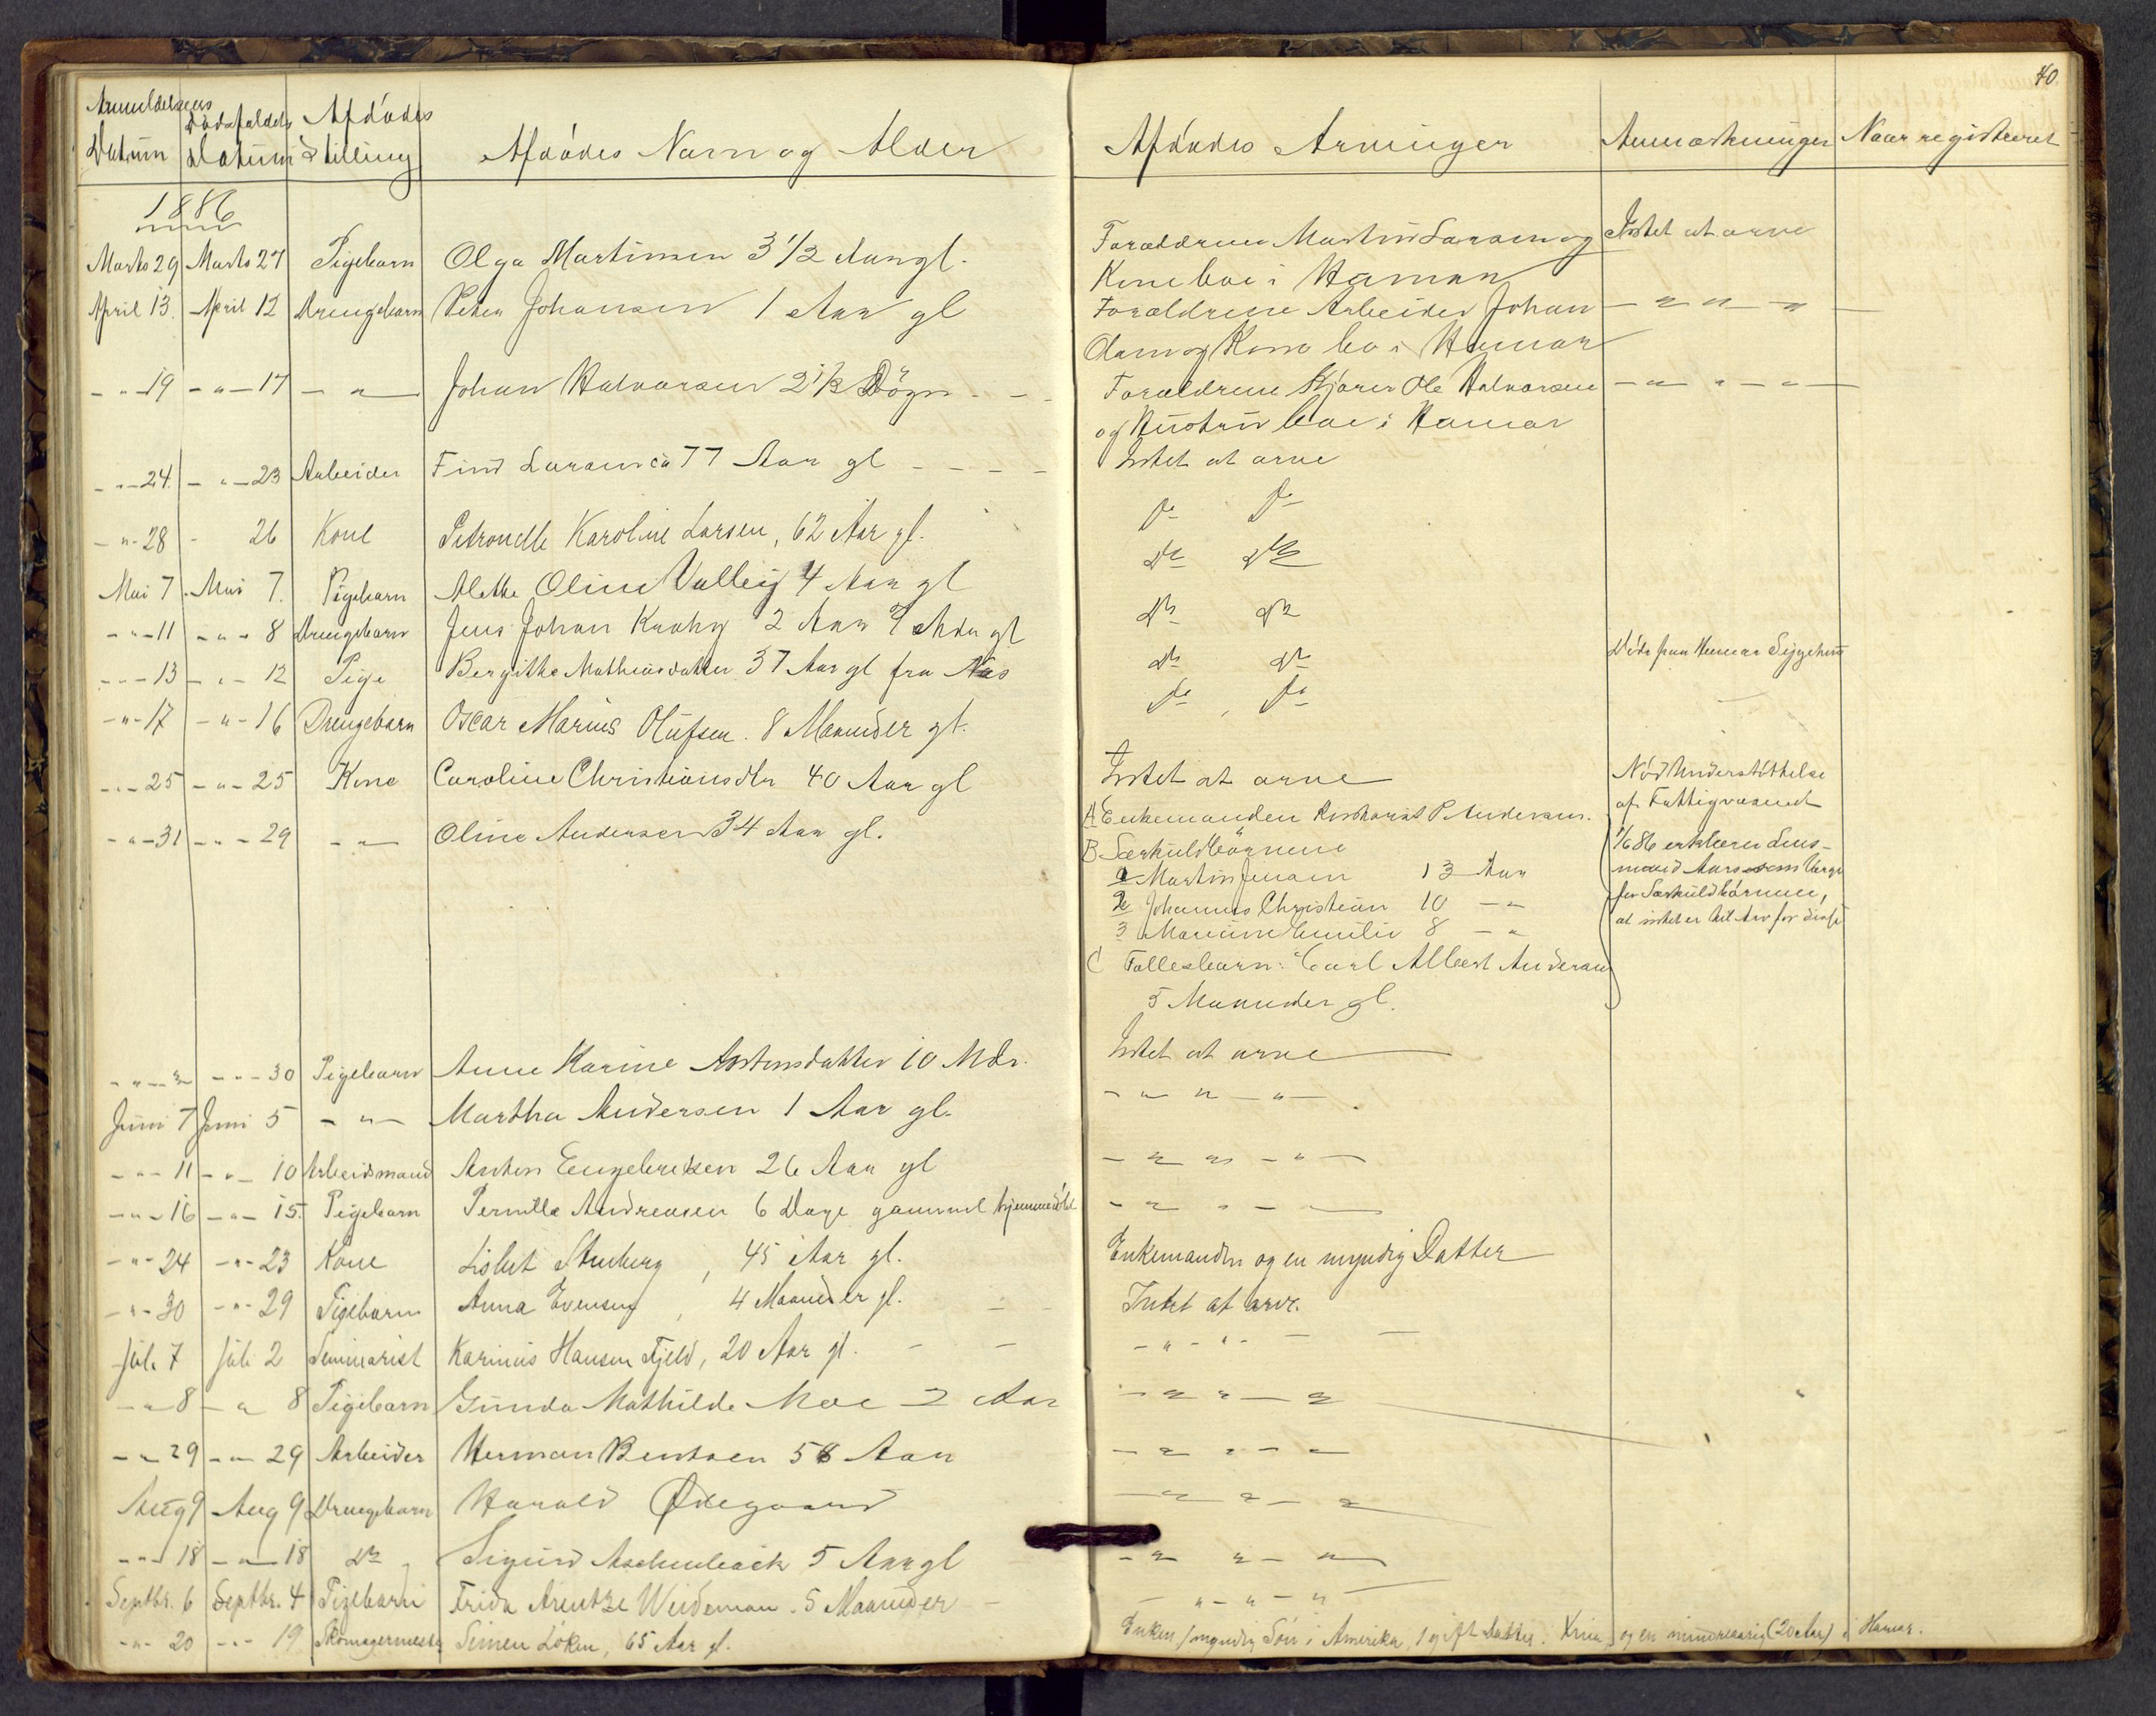 40.
Anmeldelsens Datum
Dødsfaldets Datum
Afdødes Stilling
Afdødes Navn og Alder
Afdødes Arvinger
Anmærkninger
Naar registreret
1886
Marts 29 Marts 27 Pigebarn Olga Martinsen 3 1/2 Aar gl.
Forældrene Martin Larsen og Intet at arve
Kone boe i Hamar
April 13. April 12 Drengebarn Peter Johansen 1 Aar gl
Forældrene Arbeider Johan — " " — " —
Olsen og Kone bo i Hamar
- " - 19 - " - 17 - " - Johan Halvorsen 2 1/2 Døgn - -
Forældrene Kjører Ole Halvorsen - " " - " -
og Hustru boe i Hamar
- " - 24. - " - 23 Arbeider Find Larsen ca 77 Aar gl - - - -
Intet at arve
- " - 28 - 26 Kone Petronelle Karoline Larsen, 62 Aar gl.
Do Do
Mai 7. Mai 7. Pigebarn Alette Oline Valley 4 Aar gl
Do Do
- " - 11 - " - 8 Drengebarn Jens Johan Krohg 2 Aar 9 Mdr gl
Do Do
- " - 13 - " - 12 Pige Bergitha Mathiasdatter 37 Aar gl fra Næs
Do Do Døde paa Hamar Sygehus
- " - 17 - " - 16 Drengebarn Oscar Marius Olufsen. 8 Maaneder gl.
Do Do
- " - 25 - " - 25 Kone Caroline Christiansdtr 40 Aar gl
Intet at arve Nød Understøttelse
af Fattigvæsenet
- " - 31 - " - 29 - " - Oline Andersen 34 Aar gl.
A Enkemanden P Andersen.
B Særkuldbørnene 1/6 86 erklærer Lens-
1 Martin Jensen 13 Aar mand Aars som Værge
2 Johannes Christian 10 - " for Særkuldbørnene,
3 Emilie 8 - " at intet er bit Arv for disse
C Fællesbarn: Carl Albert Andersen
5 Maaneder gl.
- " - " - " - 30 Pigebarn Anne Karine Antonsdatter 10 Mdr.
Intet at arve
Juni 7 Juni 5 - " - Martha Andersen 1 Aar gl.
- " " - " -
- " - 11 - " - 10 Arbeidsmand Anton Engebretsen 26 Aar gl
- " " - " -
- " - 16 - " - 15. Pigebarn Pernille Andreasen 6 Dage gammel hjemmedøbt
- " " - "
- " - 24 - " - 23 Kone Lisbet Stuberg, 45 Aar gl.
Enkemanden og en myndig Datter
- " - 30 - " - 29 Pigebarn Anna Evensen, 4 Maaneder gl. -
Intet at arve.
Juli 7 Juli 2 Seminarist Karinius Hansen Fjeld, 20 Aar gl. - -
- " - " - -
- " 8 - " 8 Pigebarn Gunda Mathilde Moe 2 Aar
- " " - "
- " 29 - " 29 Arbeider Herman Bentsen 58 Aar
- " " - "
Aug 9 Aug 9 Drengebarn Harald Ødegaard
- " " - "
- " - 18 - " - 18 Do Sigurd Aschenback 5 Aar gl
- " " - "
Septbr. 6 Septbr. 4 Pigebarn Frida Arentze Weideman. 5 Maaneder -
- " - " - "
- " - 20 - " - 19 Skomagermester Simen Løken, 65 Aar gl.
Enken, 1 myndig Søn i Amerika, 1 gift Datter i Xnia og en mindreaarig (20 Aar) i Hamar.